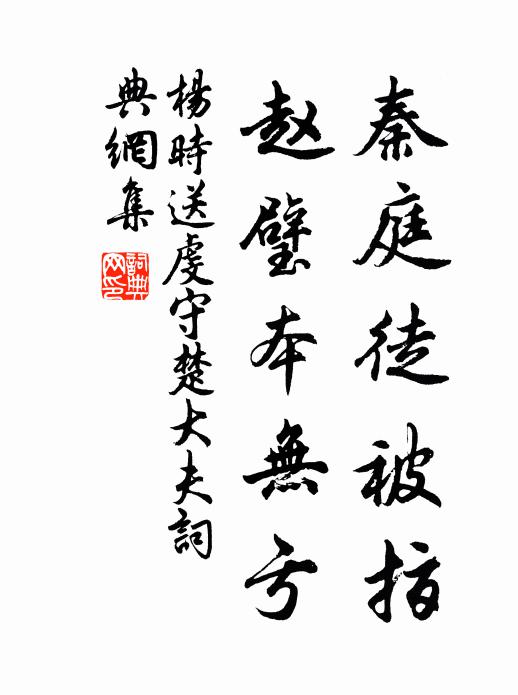 秦庭徒被指
赵璧本無亏
楊時送虔守楚大夫詞
典網集
詞典
网印